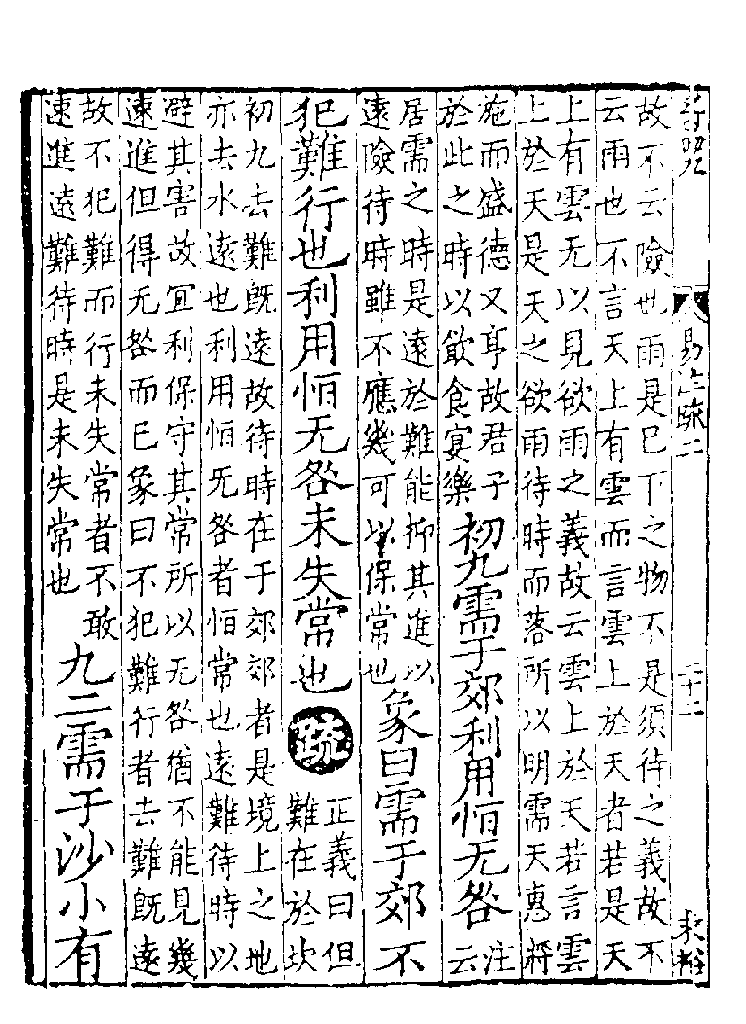 易注疏二
二十二
求裕
故不云險也雨是已下之物不是須待之義故不
云雨也不言天上有雲而言雲上於天者若是天
上有雲无以見欲雨之義故云雲上於天若言雲
上於天是天之欲雨待時而落所以明需天惠將
施而盛德又亨故君子
於此之時以飲食宴樂
初九需于郊利用恒无咎
注
云
居需之時最遠於難能抑其進以
遠險待時雖不應幾可以保常也
象曰需于郊不
犯難行也利用恒无咎未失常也
疏
正義曰但
難在於坎
初九去難既遠故待時在于郊郊者是境上之地
亦去水遠也利用恒无咎者恒常也遠難待時以
避其害故宜利保守其常所以无咎猶不能見幾
速進但得无咎而已象曰不犯難行者去難既遠
故不犯難而行未失常者不敢
速進遠難待時是未失常也
九二需于沙小有